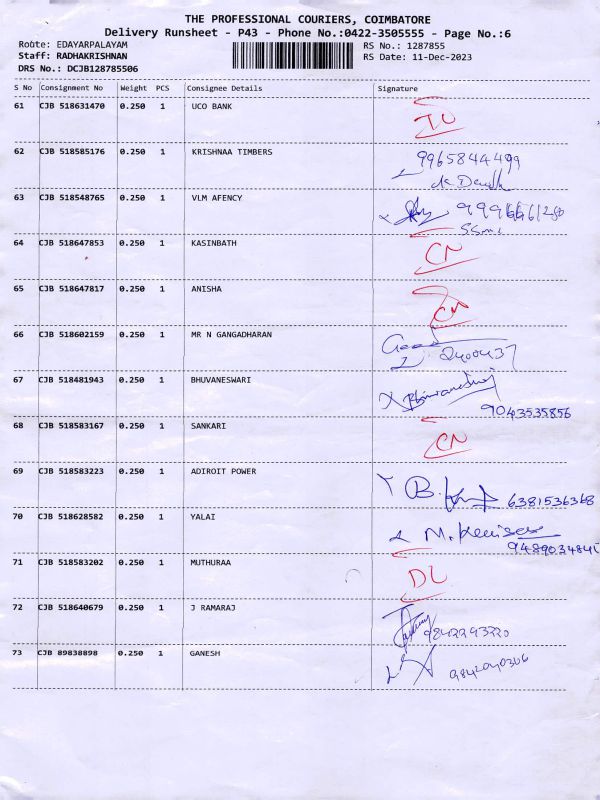 THE PROFESSIONAL COURIERS, COIMBATORE
Delivery Runsheet - P43 - Phone No.:0422-3505555 - Page No.:6
Route: EDAYARPALAYAM
RS No.: 1287855
Staff: RADHAKRISHNAN
RS Date: 11-Dec-2023
DRS No.: DCJB128785506
S No Consignment No Weight PCS Consignee Details Signature
61 CJB 518631470 0.250 1 UCO BANK
62 CJB 518585176 0.250 1 KRISHNAA TIMBERS 9965844499
63 CJB 518548765 0.250 1 VLM AFENCY
64 CJB 518647853 0.250 1 KASINBATH CN
65 CJB 518647817 0.250 1 ANISHA CN
66 CJB 518602159 0.250 1 MR N GANGADHARAN 2400437
67 CJB 518481943 0.250 1 BHUVANESWARI
9043535856
68 CJB 518583167 0.250 1 SANKARI CN
69 CJB 518583223 0.250 1 ADIROIT POWER 6381536368
70 CJB 518628582 0.250 1 YALAI
71 CJB 518583202 0.250 1 MUTHURAA DL
72 CJB 518640679 0.250 1 J RAMARAJ 9842293220
73 CJB 89838898 0.250 1 GANESH